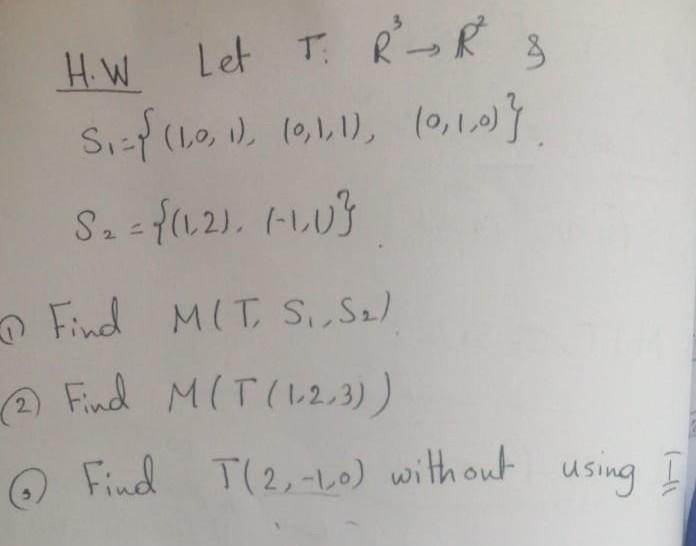 H.W Let T: R³ → R² &
S₁ = { (1,0, 1), (0,1,1), (0,1,0) }.
S₂ = {(1,2), (-1,1)}.
① Find M(T, S₁, S₂)
② Find M(T(1,2,3))
③ Find T(2,-1,0) without using I